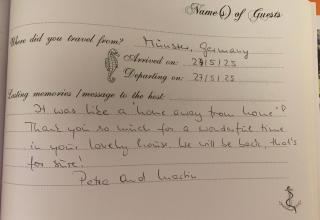 Name(s) of Guests
Where did you travel from? Münster, Germany
Arrived on: 23/5/25
Departing on: 27/5/25
Lasting memories / message to the host:
It was like a 'home away from home'!
Thank you so much for a wonderful time
in your lovely house. We will be back, that's
for sure!
Petra and Martin